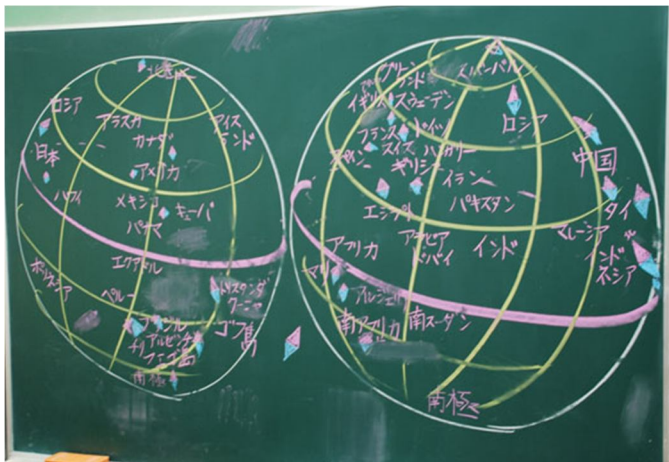 北極
ロシア
アラスカ
カナダ
アイス
ランド
日本
アメリカ
ハワイ
メキシコ
キューバ
パナマ
エクアドル
ポリネシア
ペルー
トリスタンダ
クーニャ
ブラジル
チリ
アルゼンチン
ゴフ島
南極
グリーン
ランド
スバールバル
イギリス
スウェーデン
ロシア
フランス
ドイツ
スイス
ハンガリー
中国
ギリシャ
イラン
エジプト
パキスタン
タイ
アフリカ
アラビア
ドバイ
インド
マレーシア
インド
ネシア
マリ
南アフリカ
南スーダン
南極